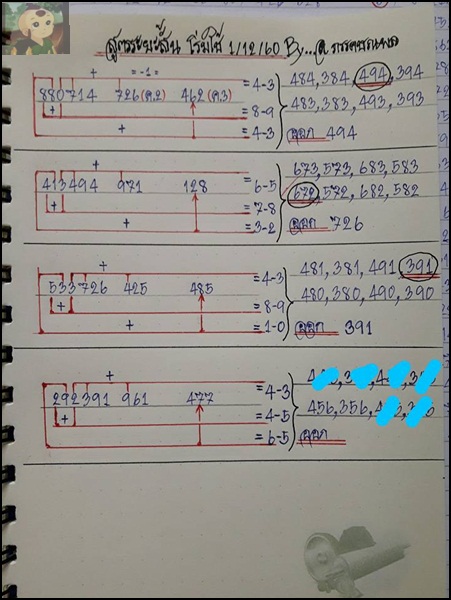 สูตรระยะสั้น เริ่มใช้ 1/12/60 By...
+ = -1 =
= 4-3 484, 384, 494, 394
880714 726 (ค.2) 462 (ค.3)
+ 483, 383, 493, 393
= 8-9
+ = 4-3 ออก 494
+ 673, 573, 683, 583
413494 971 128 = 6-5
672, 572, 682, 582
+ = 7-8
+ = 3-2 ออก 726
+ = 4-3 481, 381, 491 391
533726 425 485
480, 380, 490, 390
+ = 8-9
+ = 1-0 ออก 391
+ = 4-3
292391 961 477
+ = 4-5 456, 356,
= 6-5 ออก